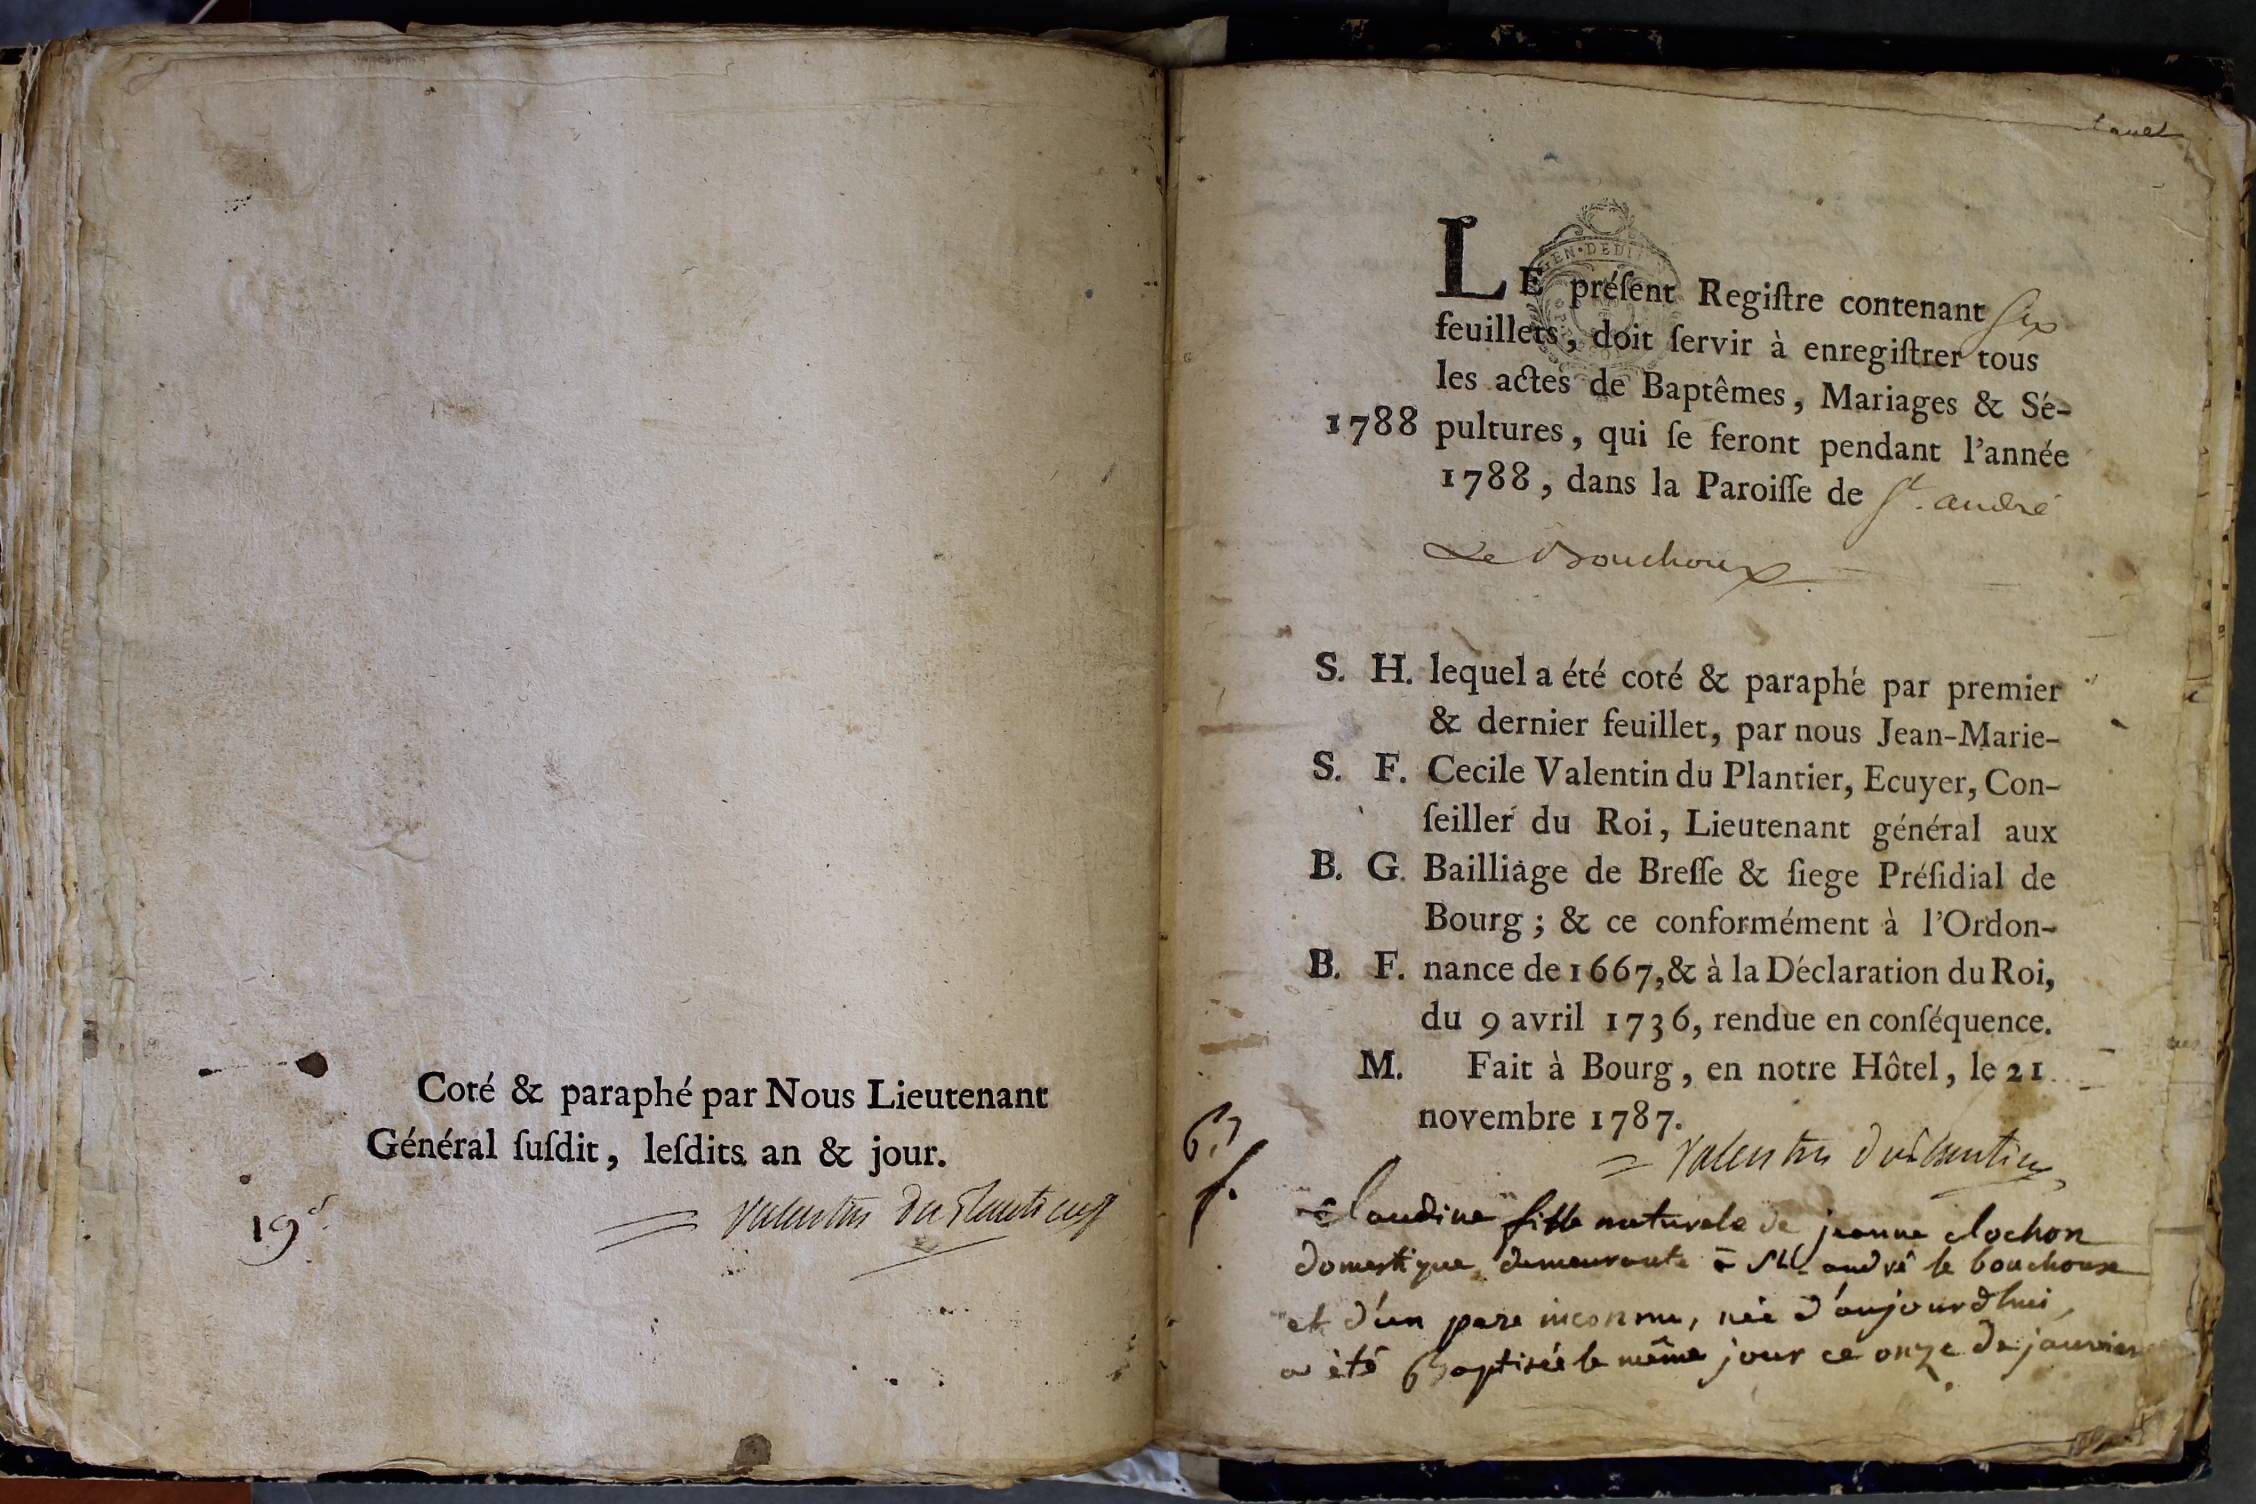 Coté & paraphé par Nous Lieutenant
Général ſuſdit, leſdits an & jour.
Valentin du Plantier
19
LE préſent Regiſtre contenant Six
feuillets, doit ſervir à enregiſtrer tous
les actes de Baptêmes, Mariages & Sé-
1788 pultures, qui ſe feront pendant l'année
1788, dans la Paroiſſe de St. andré
Le Bouchoux
S. H. lequel a été coté & paraphé par premier
& dernier feuillet, par nous Jean-Marie-
S. F. Cecile Valentin du Plantier, Ecuyer, Con-
ſeiller du Roi, Lieutenant général aux
B. G. Bailliage de Breſſe & ſiege Préſidial de
Bourg ; & ce conformément à l'Ordon-
B. F. nance de 1667, & à la Déclaration du Roi,
du 9 avril 1736, rendue en conſéquence.
M. Fait à Bourg, en notre Hôtel, le 21
novembre 1787.
Valentin du Plantier
Claudine fille naturele de jeanne clochon
domestique demeurante à St andré le bouchoux
et d'un pere inconnu, née d'aujourdhui,
a été Baptisée le même jour ce onze de janvier